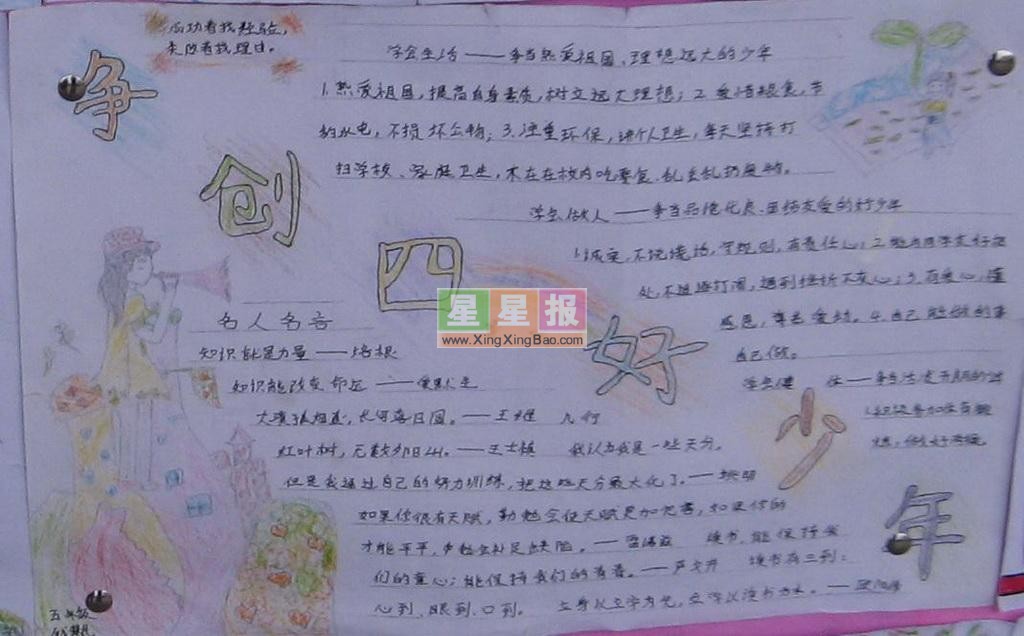 成功者找经验,
失败者找理由。
争创四好少年
学会生活——争当热爱祖国、理想远大的少年
1.热爱祖国,提高自身素质,树立远大理想;2.爱惜粮食,节
约水电,不损坏公物;3.注重环保,讲个人卫生,每天坚持打
扫学校、家庭卫生,不在在校内吃零食、乱丢乱扔废物。
学会做人——争当品德优良、团结友爱的好少年
1.诚实,不说谎话,守规则,有责任心;2.能与同学友好相
处,不追逐打闹,遇到挫折不灰心;3.有爱心,懂
感恩,尊老爱幼。4.自己能做的事
自己做。
学会健 体——争当活泼开朗的
1.积极参加体育锻
炼,做好
星星报
www.XingXingBao.com
名人名言
知识就是力量——培根
知识能改变命运——
大漠孤烟直,长河落日圆。——王维
红叶树,无数夕阳山。——王士禛 我认为我是一些天分。
但是我通过自己的努力训练,把这些天分最大化了。——姚明
如果你很有天赋,勤勉会使天赋更加完善,如果你的
才能平平,勤勉会补足缺陷。—— 读书,能保持我
们的童心;能保持我们的青春。——严文井 读书有三到:
心到、眼到、口到。 立身以立学为先,立学以读书为本。——欧阳修
五年级